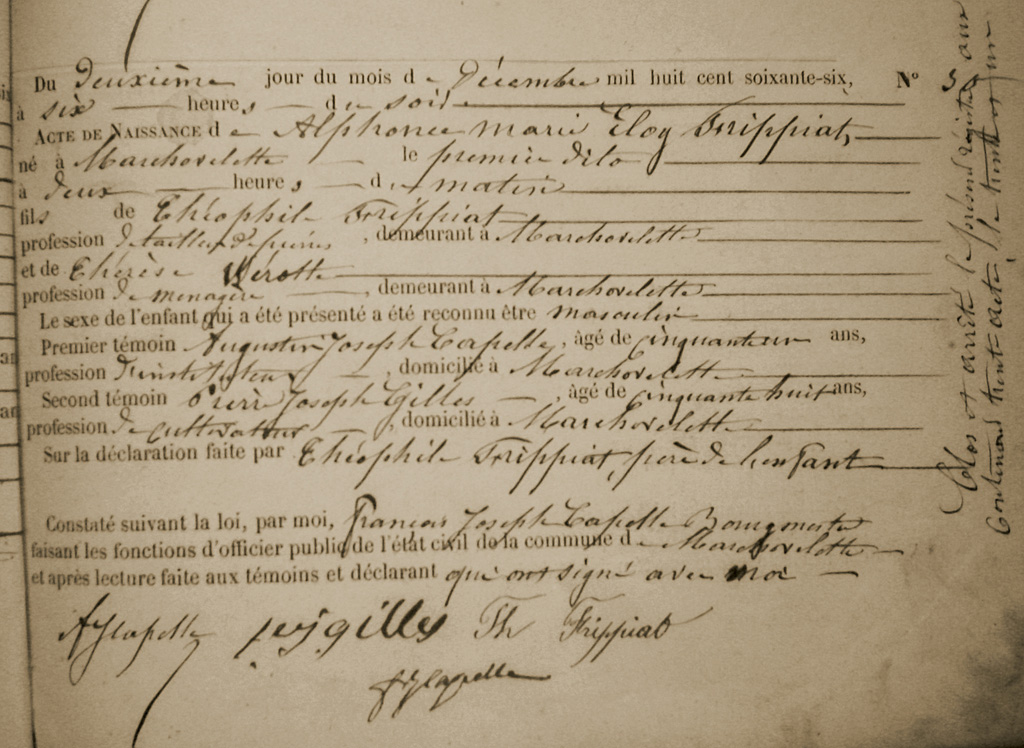 Du deuxième jour du mois de Décembre mil huit cent soixante-six, N°
à six heures du soir
ACTE DE NAISSANCE de Alphonce marie Eloy Frippiat,
né à Marchovelette le premier dito
à deux heures du matin
fils de Théophile Frippiat
profession de tailleur de pierres, demeurant à Marchovelette
et de Thérèse Vérotte
profession de menagère, demeurant à Marchovelette
Le sexe de l'enfant qui a été présenté a été reconnu être masculin
Premier témoin Augustin Joseph Capelle, âgé de cinquante un ans,
profession d'instituteur, domicilié à Marchovelette
Second témoin Pierre Joseph Gilles, âgé de cinquante huit ans,
profession de cultivateur, domicilié à Marchovelette
Sur la déclaration faite par Théophile Frippiat, père de l'enfant
Constaté suivant la loi, par moi, François Joseph Capelle Bourgmestre
faisant les fonctions d'officier public de l'état civil de la commune de Marchovelette
et après lecture faite aux témoins et déclarant qui ont signé avec moi
AJ Capelle pejgilles Th Frippiat
FJ Capelle
Clos et arrêté le présent registre aux
Contenant trente acte, le trente